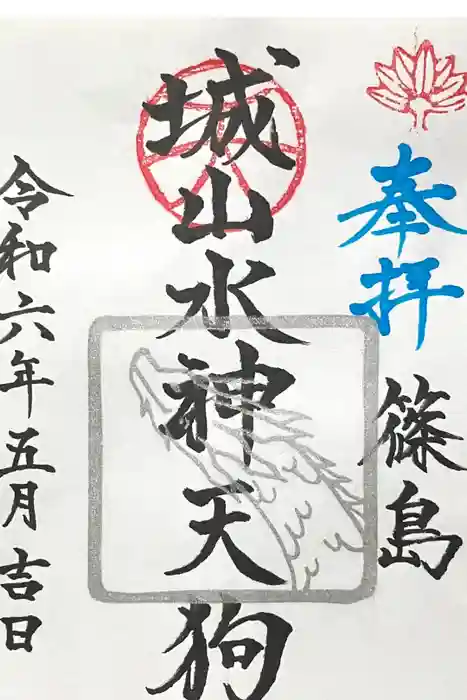 奉拝
篠島
城山水神天狗
令和六年五月吉日